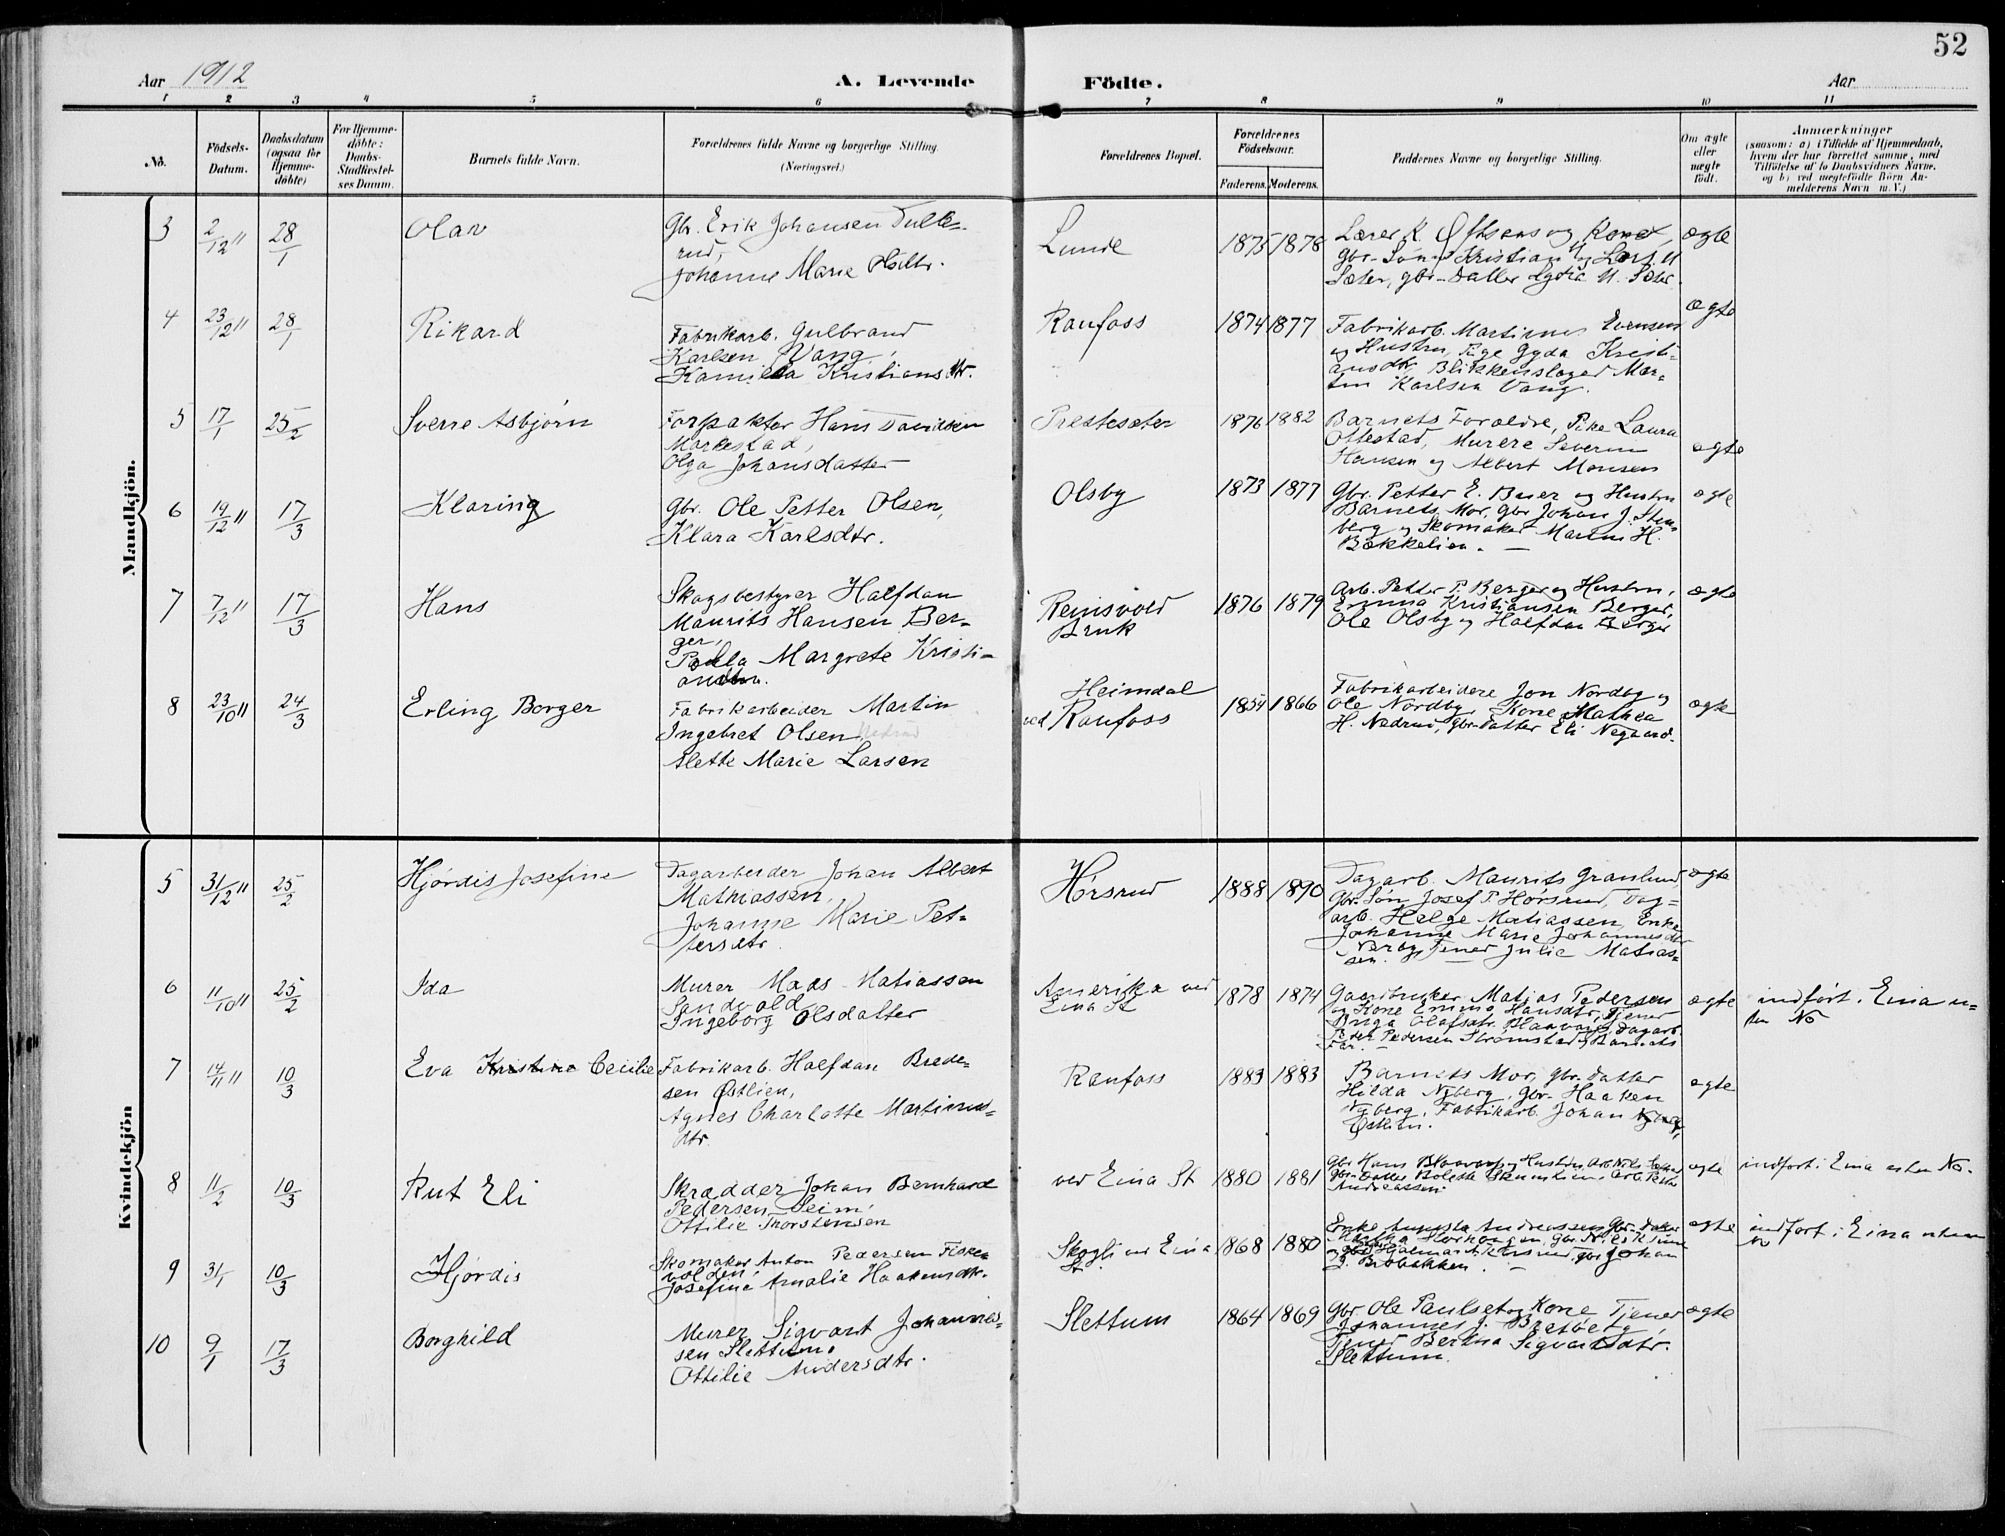 52
Aar 1912
A. Levende Födte.
Aar
1 2 3 4 5 6 7 8 9 10 11
No.
Födsels-
Datum.
Daabsdatum
(ogsaa för
Hjemme-
döbte)
For Hjemme-
döbte:
Daabs-
Stadfæstel-
ses Datum.
Barnets fulde Navn.
Forældrenes fulde Navne og borgerlige Stilling
(Næringsvei.)
Forældrenes Bopæl.
Forældrenes
Födselsaar.
Faderens. Moderens.
Faddernes Navne og borgerlige Stilling.
Om ægte
eller
uægte
födt.
Anmærkninger
(saasom: a) i Tilfælde af Hjemmedaab,
hvem der har forrettet samme, med
Tilföielse af to Daabsvidners Navne,
og b) ved uægtefödte Börn An-
melderens Navn m. V.)
Mandkjön.
3
2/12 11
28/1
Olav
Gbr. Erik Johansen Tulle-
rud,
Johanne Marie
Lunde
1875 1878
Lærer K. og Kone,
gbr. Søn Kristian og Lars M
Sæter, gbr-Datter Lydia M. Sæter.
ægte
4
23/12 11
28/1
Rikard
Fabrikarb. Gulbrand
Karlsen Vang,
Kamilla Kristiansdtr.
Raufoss
1874 1877
Fabrikarb. Martinus Evensen
og Hustru, Pige Gyda Kristi-
ansdtr, Blikkenslager Mar-
tin Karlsen Vang.
ægte
5
17/1
25/2
Sverre Asbjørn
Forpakter Hans Davidsen
Markestad,
Olga Johansdatter
Prestesæter
1876 1882
Barnets Forældre, Pike Laura
Ottestad, Murere Severin
Hansen og Albert Monsen
ægte
6
19/12 11
17/3
Klaring
Gbr. Ole Petter Olsen,
Klara Karlsdtr.
Olsby
1873 1877
Gbr. Petter E. Buer og Hustru
Barnets Mor, gbr Johan J. Sten-
berg og Skomaker Marius H.
Bækkelien. —
ægte
7
7/12 11
17/3
Hans
Skogsbestyrer Halfdan
Maurits Hansen Ber-
ger,
Paula Margrete Kristi-
Reinsvold
Bruk
1876 1879
Arb. Petter P. Berger og Hustru,
Emma Kristiansen Berger,
Ole Olsby og Halfdan Berger
ægte
8
23/10 11
24/3
Erling Borger
Fabrikarbeider Martin
Ingebret Olsen
Alette Marie Larsen
Heimdal
ved Raufoss
1854 1866
Fabrikarbeidere Jon Nordby og
Ole Nordby, Kone Mathea
H. Nedrud, gbr-datter Eli Negaard.
ægte
Kvindekjön
5
31/12 11
25/2
Hjørdis Josefine
Dagarbeider Johan Albert
Mathiassen,
Johanne Marie Pet-
tersdtr.
Hørsrud
1888 1890
Dagarb. Maurits Granlund,
gbr-Søn Josef P. Hørsrud, Dag-
arb. Helge Matiassen, Enke
Johanne Marie Johannesdtr
Nerby, Tener Julie Matias-
sen.
ægte
6
11/10 11
25/2
Ida
Murer Mads Matiassen
Sandvold
Ingeborg Olsdatter
Amerika ved
Eina St
1878 1874
Gaardbruker Matias Pedersen
og Kone Emma Hansdtr, Tjener
Olafsdtr. Blaavarp, Dagarb.
Peder Pedersen Strømstad og Barnets
Far. —
ægte
indført i Eina u-
ten No
7
14/11 11
10/3
Eva Kristine Cecilie
Fabrikarb. Halfdan Brede-
sen Østlien,
Agnes Charlotte Martinus-
dtr.
Raufoss
1883 1883
Barnets Mor, gbr-datter
Hilda Nyberg, gbr. Haaken
Nyberg, Fabrikarb. Johan
Østlien.
ægte
8
11/2
10/3
Rut Eli
Skrædder Johan Bernhard
Pedersen Seim,
Ottilie Thorstensen
ved Eina St
1880 1881
Gbr Hans Blaavarp og Hustru, Arb. Nils
gbr-datter Bolette Arb.
Andreassen.
ægte
indført i Eina uten No.
9
31/1
10/3
Hjørdis
Skomaker Anton Pedersen Fiske-
volden,
Josefine Amalie Haakensdtr.
Skogli ved Eina
St.
1868 1880
Enke Augusta Andreassen, Gbr-datter
Johan
ægte
indført i Eina uten
No
10
9/1
17/3
Borghild
Murer Sigvart Johannes-
sen Slettum.
Ottilie Andersdtr.
Slettum
1864 1869
Gbr. Ole Paulset og Kone, Tjener
Johannes J. og
Tjener Bertha Sigvartsdtr.
Slettum.
ægte